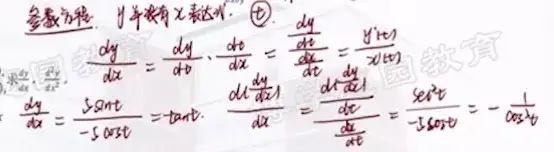 参数方程. y 并没有 x 表达式. ⓣ
dy/dx = dy/dt · dt/dx = (dy/dt)/(dx/dt) = y'(t)/x'(t)
求 dy/dx, d²y/dx².
dy/dx = 5sint/-5cost = -tant. d(dy/dx)/dx = (d(dy/dx)/dt)/(dx/dt) = sec²t/-5cost = -1/cos³t
教育
国教育